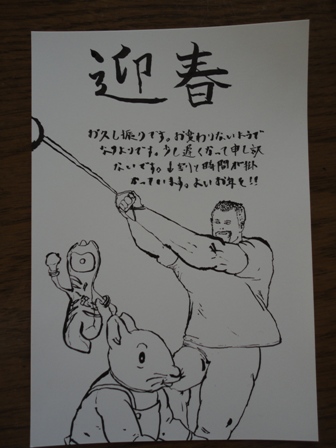 迎春
お久し振りです。お変わりないようで
なによりです。少し遅くなって申し訳
ないです。 時間が掛
かっています。よいお年を!!